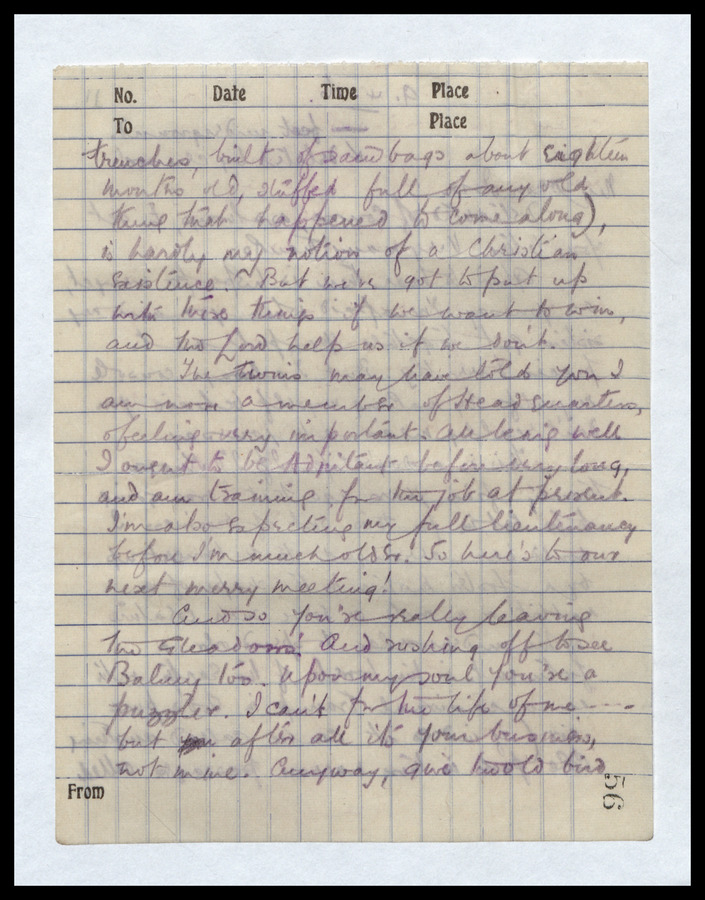 No. Date Time Place
To Place
trenches, built of sandbags about eighteen
months old, stuffed full of any old
thing that happened to come along),
is hardly my notion of a Christian
existence. But we've got to put up
with these things if we want to win,
and the Lord help us if we don't.
The twins may have told you I
am now a member of Headquarters,
& feeling very important. All being well
I ought to be Adjutant before very long,
and am training for the job at present.
I'm also expecting my full lieutenancy
before I'm much older. So here's to our
next merry meeting!
And so you're really leaving
the And rushing off to see
Balmy too. Upon my soul you're a
puzzler. I can't for the life of me ----
but after all it's your business,
not mine. Anyway, give the old bird
From
56